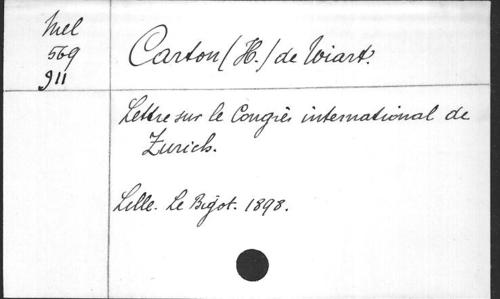 Mel
569
911
Carton (H.) de Wiart.
Lettre sur le Congrès international de
Zurich.
Lille. Le Bigot. 1898.